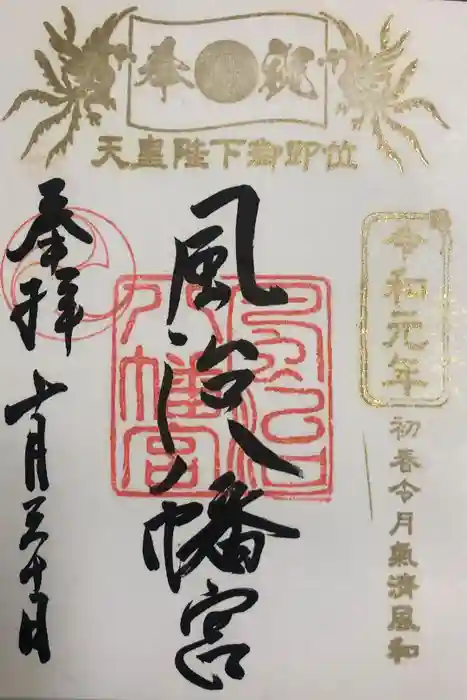 奉祝
天皇陛下御即位
令和元年
初春令月氣淑風和
風治八幡宮
風治八幡宮
奉拝
十月三十日